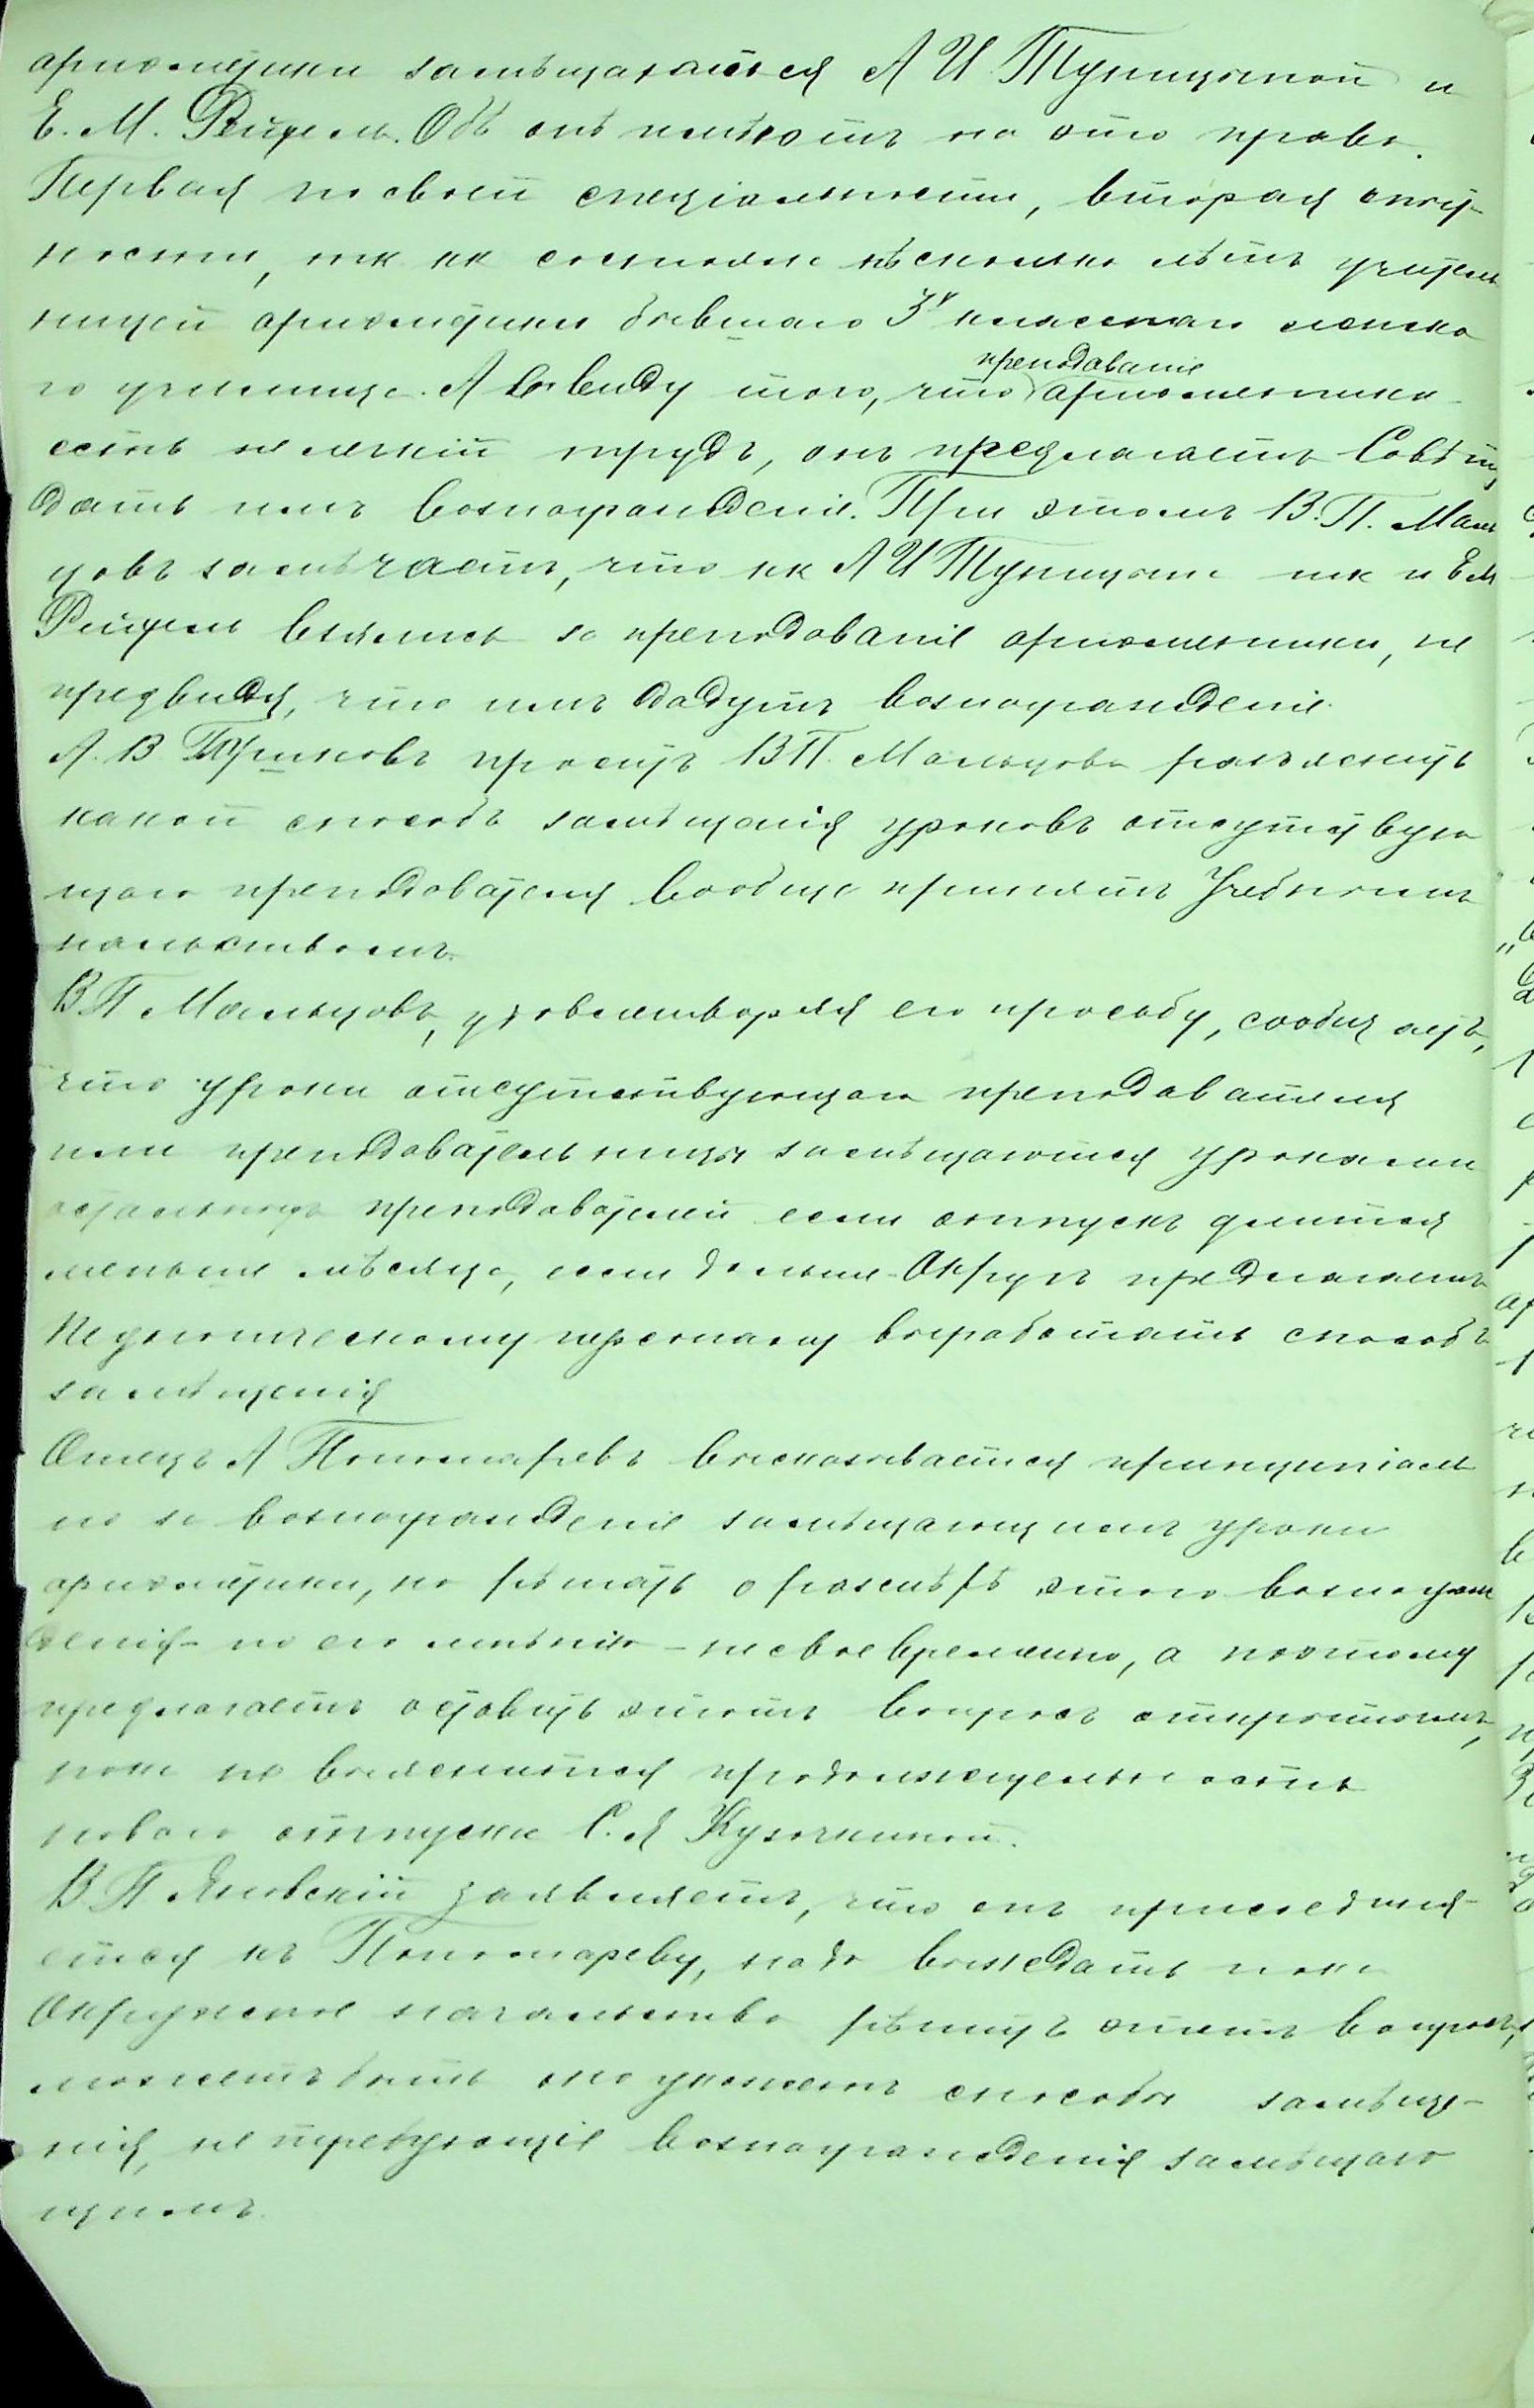 ариѳметики замѣщаются А И Тупицыной и
Е. М. Рейтель. Обѣ онѣ имѣютъ на это право.
Первая по своей спеціальности, вторая опыт-
ности, тк кк состояла нѣсколько лѣтъ учитель
ницей ариѳметики бывшаго 3х класснаго женска
го училища. А въ виду того, что преподаваніе ариѳметики
есть не легкій трудъ, онъ предлагаетъ Совѣту
дать имъ вознагражденіе. При этомъ В. П. Маль
цовъ замѣчаетъ, что кк А И Тупицына тк и Е М
Рейтель взялись за преподаваніе ариѳметики, не
предвидя, что имъ дадутъ вознагражденіе.
А. В. проситъ В П. Мальцова разъяснить
какой способъ замѣщенія уроковъ отсутствую
щаго преподавателя вообще принятъ Учебнымъ
начальствомъ.
В П Мальцовъ, удовлетворяя его просьбу, сообщаетъ,
что уроки отсутствующаго преподавателя
или преподавательницы замѣщаются уроками
остальныхъ преподавателей если отпускъ длится
меньше мѣсяца, если дольше - Округъ предлагаетъ
Педагогическому персоналу выработать способъ
замѣщенія
Отецъ А Пономаревъ высказывается принципіаль
но за вознагражденіе замѣщающимъ уроки
ариѳметики, но рѣшать о размѣрѣ этого вознаграж
денія - по его мнѣнію - несвоевременно, а поэтому
предлагаетъ оставить этотъ вопросъ открытымъ,
пока не выяснится продолжительность
новаго отпуска С. А Кузочкиной.
В. П Яновскій заявляетъ, что онъ присоединя-
ется къ Пономареву, надо выждать пока
Окружное начальство рѣшитъ этотъ вопросъ,
можетъ быть оно укажетъ способы замѣще-
нія, не требующіе вознагражденія замѣщаю
щимъ.